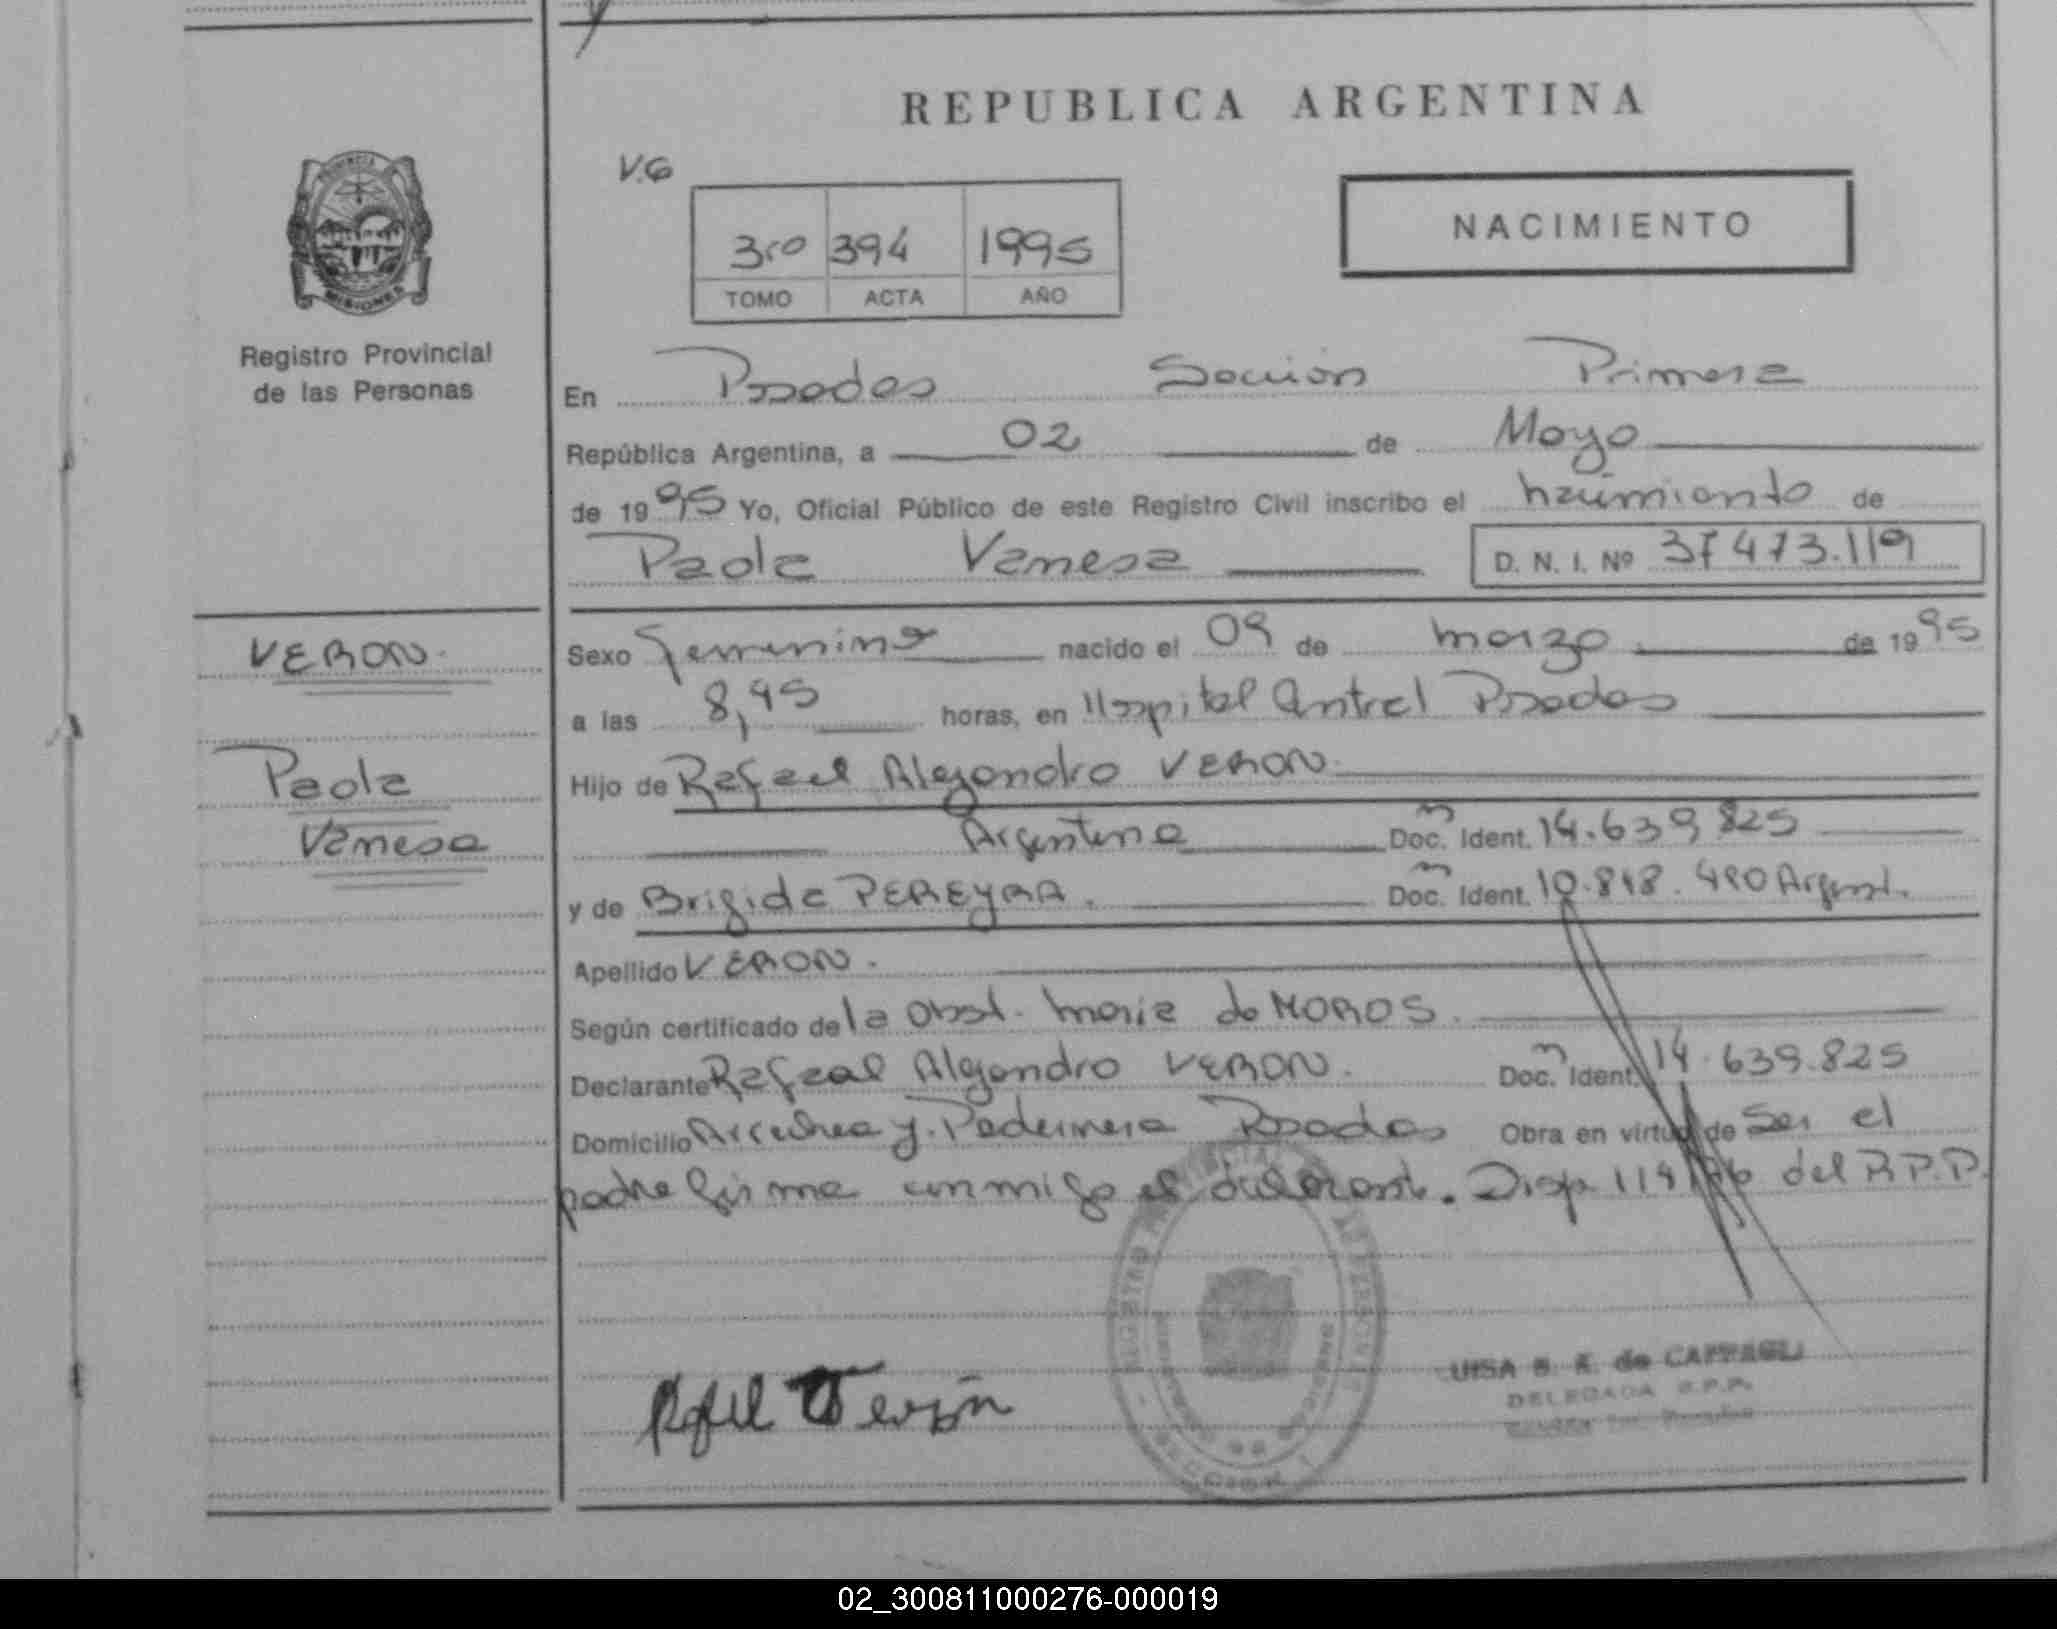 REPUBLICA ARGENTINA
V.G
3ro 394 1995
TOMO ACTA AÑO
NACIMIENTO
PROVINCIA
MISIONES
Registro Provincial
de las Personas
En Posadas Sección Primera
República Argentina, a 02 de Mayo
de 1995 Yo, Oficial Público de este Registro Civil inscribo el nacimiento de
Paola Vanesa D. N. I. Nº 37473.119
VERON.
Paola
Vanesa
Sexo Femenino nacido el 09 de marzo de 1995
a las 8,45 horas, en Hospital Central Posadas
Hijo de Rafael Alejandro VERON.
Argentina Doc. Ident. 14.639.825
y de Brigida PEREYRA. Doc. Ident. Argent.
Apellido VERON.
Según certificado de la Obst. Maria de MOROS.
Declarante Rafael Alejandro VERON. Doc. Ident. 14.639.825
Domicilio Arrechea y Pedernera Posadas Obra en virtud de Ser el
padre firma conmigo el declarante. Disp. del R.P.P.
SECCION 1
Rafael Verón
LUISA de
DELEGADA R.P.P.
02_300811000276-000019